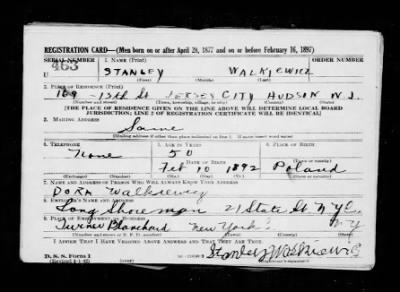 REGISTRATION CARD—(Men born on or after April 28, 1877 and on or before February 16, 1897)
SERIAL NUMBER 1. NAME (Print) ORDER NUMBER
U 463 STANLEY WALKIEWICZ
(First) (Middle) (Last)
2. PLACE OF RESIDENCE (Print)
169 - 15th St JERSEY CITY HUDSON N.J.
(Number and street) (Town, township, village, or city) (County) (State)
[THE PLACE OF RESIDENCE GIVEN ON THE LINE ABOVE WILL DETERMINE LOCAL BOARD
JURISDICTION; LINE 2 OF REGISTRATION CERTIFICATE WILL BE IDENTICAL]
3. MAILING ADDRESS
Same
[Mailing address if other than place indicated on line 2. If same insert word same]
4. TELEPHONE 5. AGE IN YEARS 6. PLACE OF BIRTH
None 50
DATE OF BIRTH (Town or county)
Feb 10 1892 Poland
(Exchange) (Number) (Mo.) (Day) (Yr.) (State or country)
7. NAME AND ADDRESS OF PERSON WHO WILL ALWAYS KNOW YOUR ADDRESS
DORA Walkiewicz
8. EMPLOYER'S NAME AND ADDRESS
Long Shoreman 21 State St. N.Y.C.
9. PLACE OF EMPLOYMENT OR BUSINESS
Turner Blanchard New York N.Y
(Number and street or R. F. D. number) (Town) (County) (State)
I AFFIRM THAT I HAVE VERIFIED ABOVE ANSWERS AND THAT THEY ARE TRUE.
D. S. S. Form 1 Stanley Walkiewicz